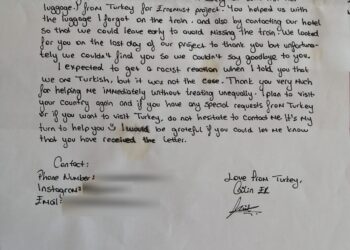 luggage from Turkey for Erasmust project. You helped us with
the luggage I forgot on the train, and also by contacting our hotel
so that we could leave early to avoid missing the train. We looked
for you on the last day of our project to thank you but unfortuna-
tely we couldn't find you so we couldn't say goodbye to you.
I expected to get a racist reaction when I told you that
we are Turkish, but it was not the case. Thank you very much
for helping me immediately without treating unequally. I plan to visit
your country again and if you have any special requests from Turkey
or if you want to visit Turkey, do not hesitate to contact me it's my
turn to help you. I would be grateful if you could let me know
that you have received the letter.
Contact:
Phone Number:
Instagram:
Email:
Love from Turkey,